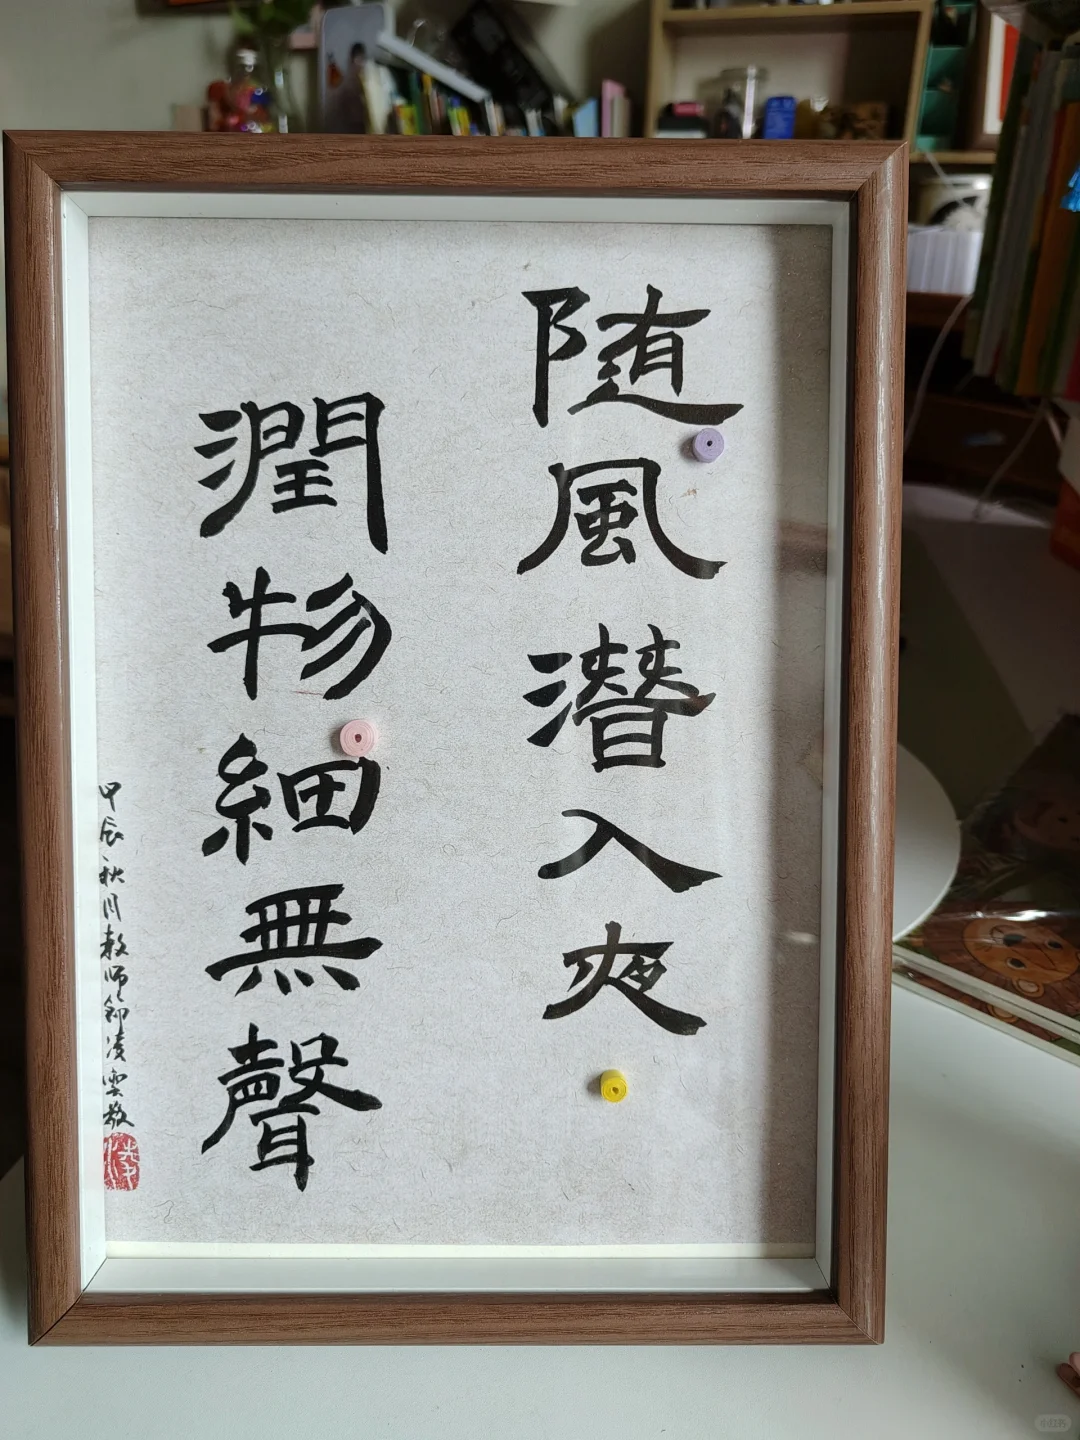 随風潛入夜
潤物細無聲
甲辰秋月教師節凌雲敬
小红书